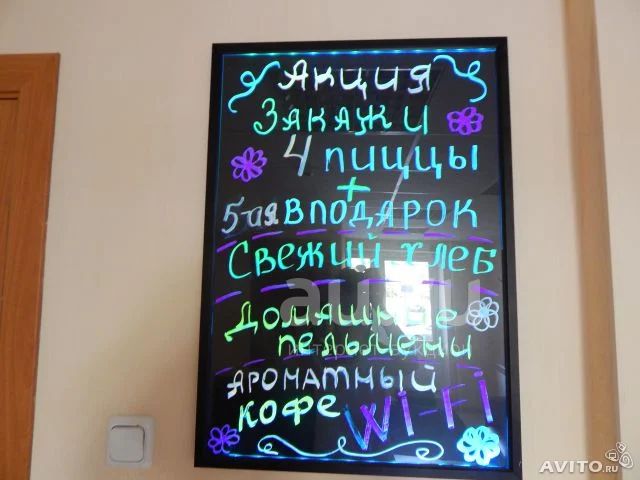 Акция
Закажи
4 пиццы
+
5-ая в подарок
Свежий хлеб
Домашние
пельмени
Ароматный
кофе Wi-Fi
AVITO.ru